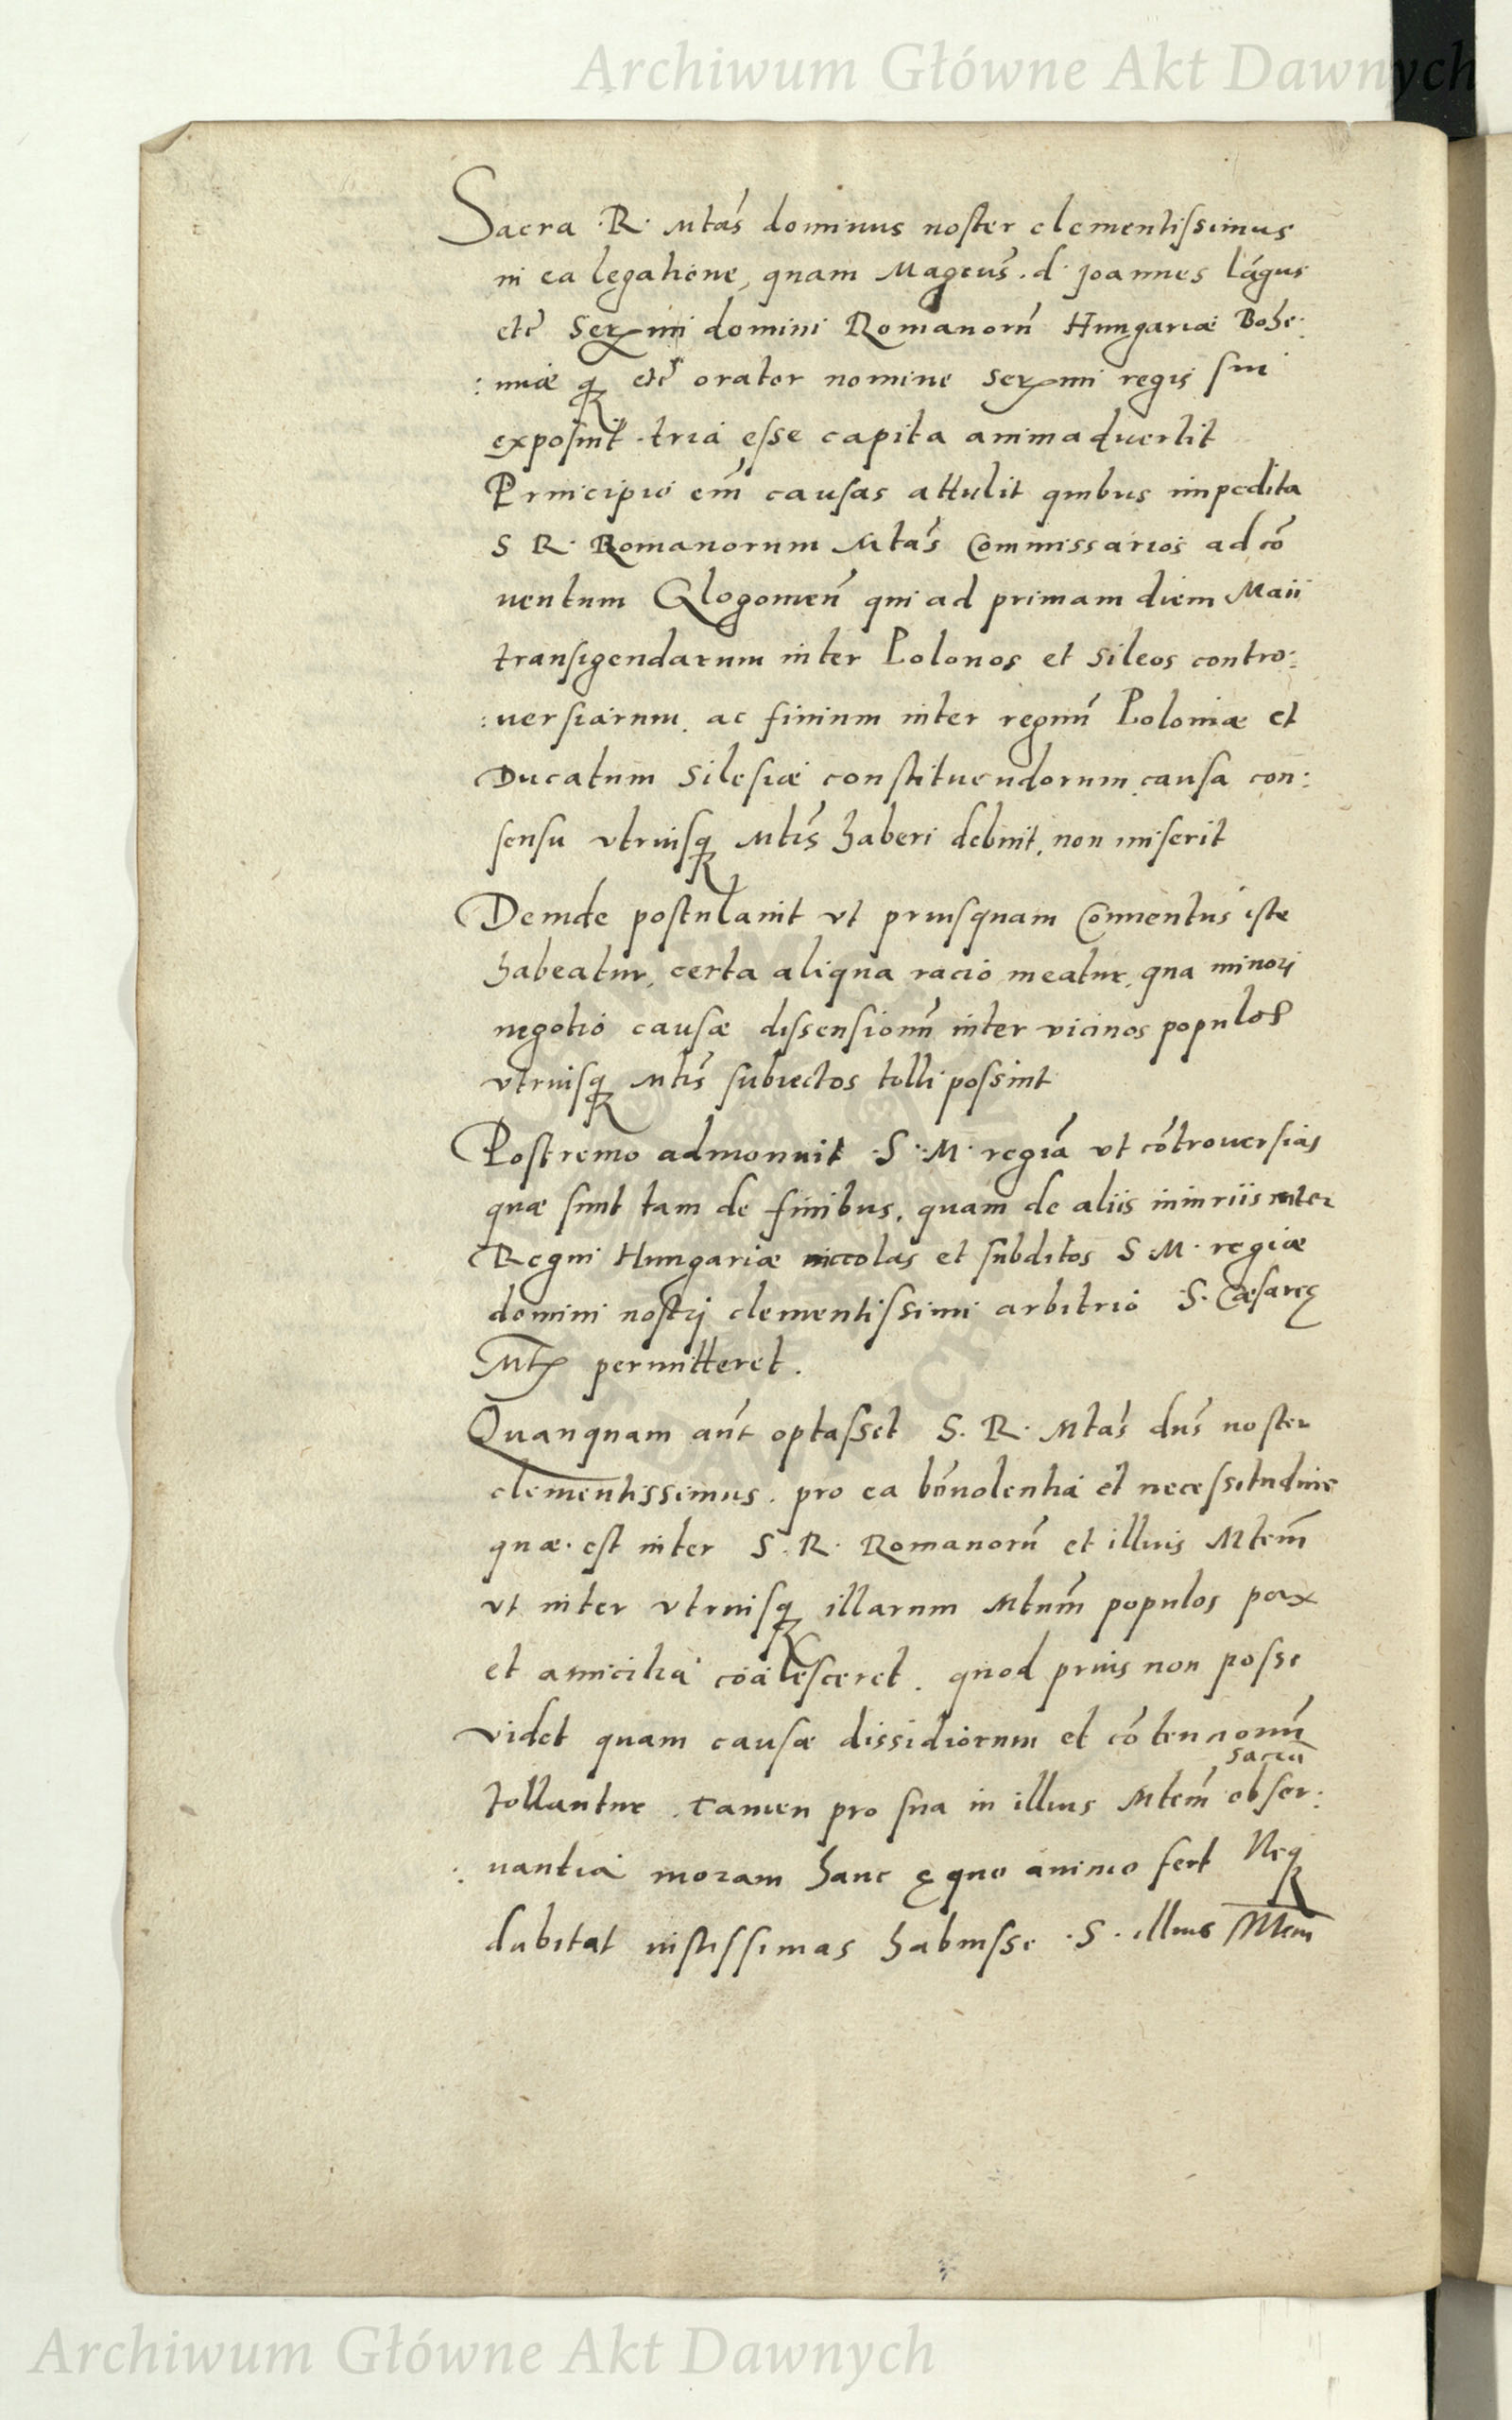 Archiwum Główne Akt Dawnych
Sacra R. Mtás dominus noster clementissimus
in ea legatione, quam Magcus. d. Joannes Lágus
etc Sermi domini Romanorū Hungariæ Bohe:
:miæ q; etc orator nomine Sermi regis sui
exposuit tria esse capita animaduertit
Principio em̄ causas attulit quibus impedita
S R. Romanorum Mtás Commissarios ad cō
uentum Glogouien̄ qui ad primam diem Maii
transigendarum inter Polonos et Sileos contro:
:uersiarum, ac finium inter regnū Poloniæ et
Ducatum Silesiæ constituendorum causa con:
sensu vtriusq; Mtis haberi debuit, non miserit
Deinde postulauit vt priusquam Conuentus iste
habeatur, certa aliqua racio ineatur, qua minori
negotio causæ dissensionū inter vicinos populos
vtriusq; Mtis subiectos tolli possint
Postremo admonuit S. M. regiā vt cōtrouersias
quæ sunt tam de finibus, quam de aliis iniuriis inter
Regni Hungariæ incolas et subditos S. M. regiæ
domini nostri clementissimi arbitrio S. Cæsareę
Mtis permitteret.
Quanquam aūt optasset S. R. Mtás dn̄s noster
clementissimus. pro ea bēnolentia et necessitudine
quæ est inter S. R. Romanorū et illius Mtem̄
vt inter vtriusq; illarum Mtum̄ populos pax
et amicitia coalesceret. quod prius non posse
videt quam causæ dissidiorum et cōtencionū
tollantur. tamen pro sua in illius sacrā Mtem̄ obser:
:uantia moram hanc ęquo animo fert Neq;
dubitat iustissimas habuisse S. illius Mtem̄
Archiwum Główne Akt Dawnych